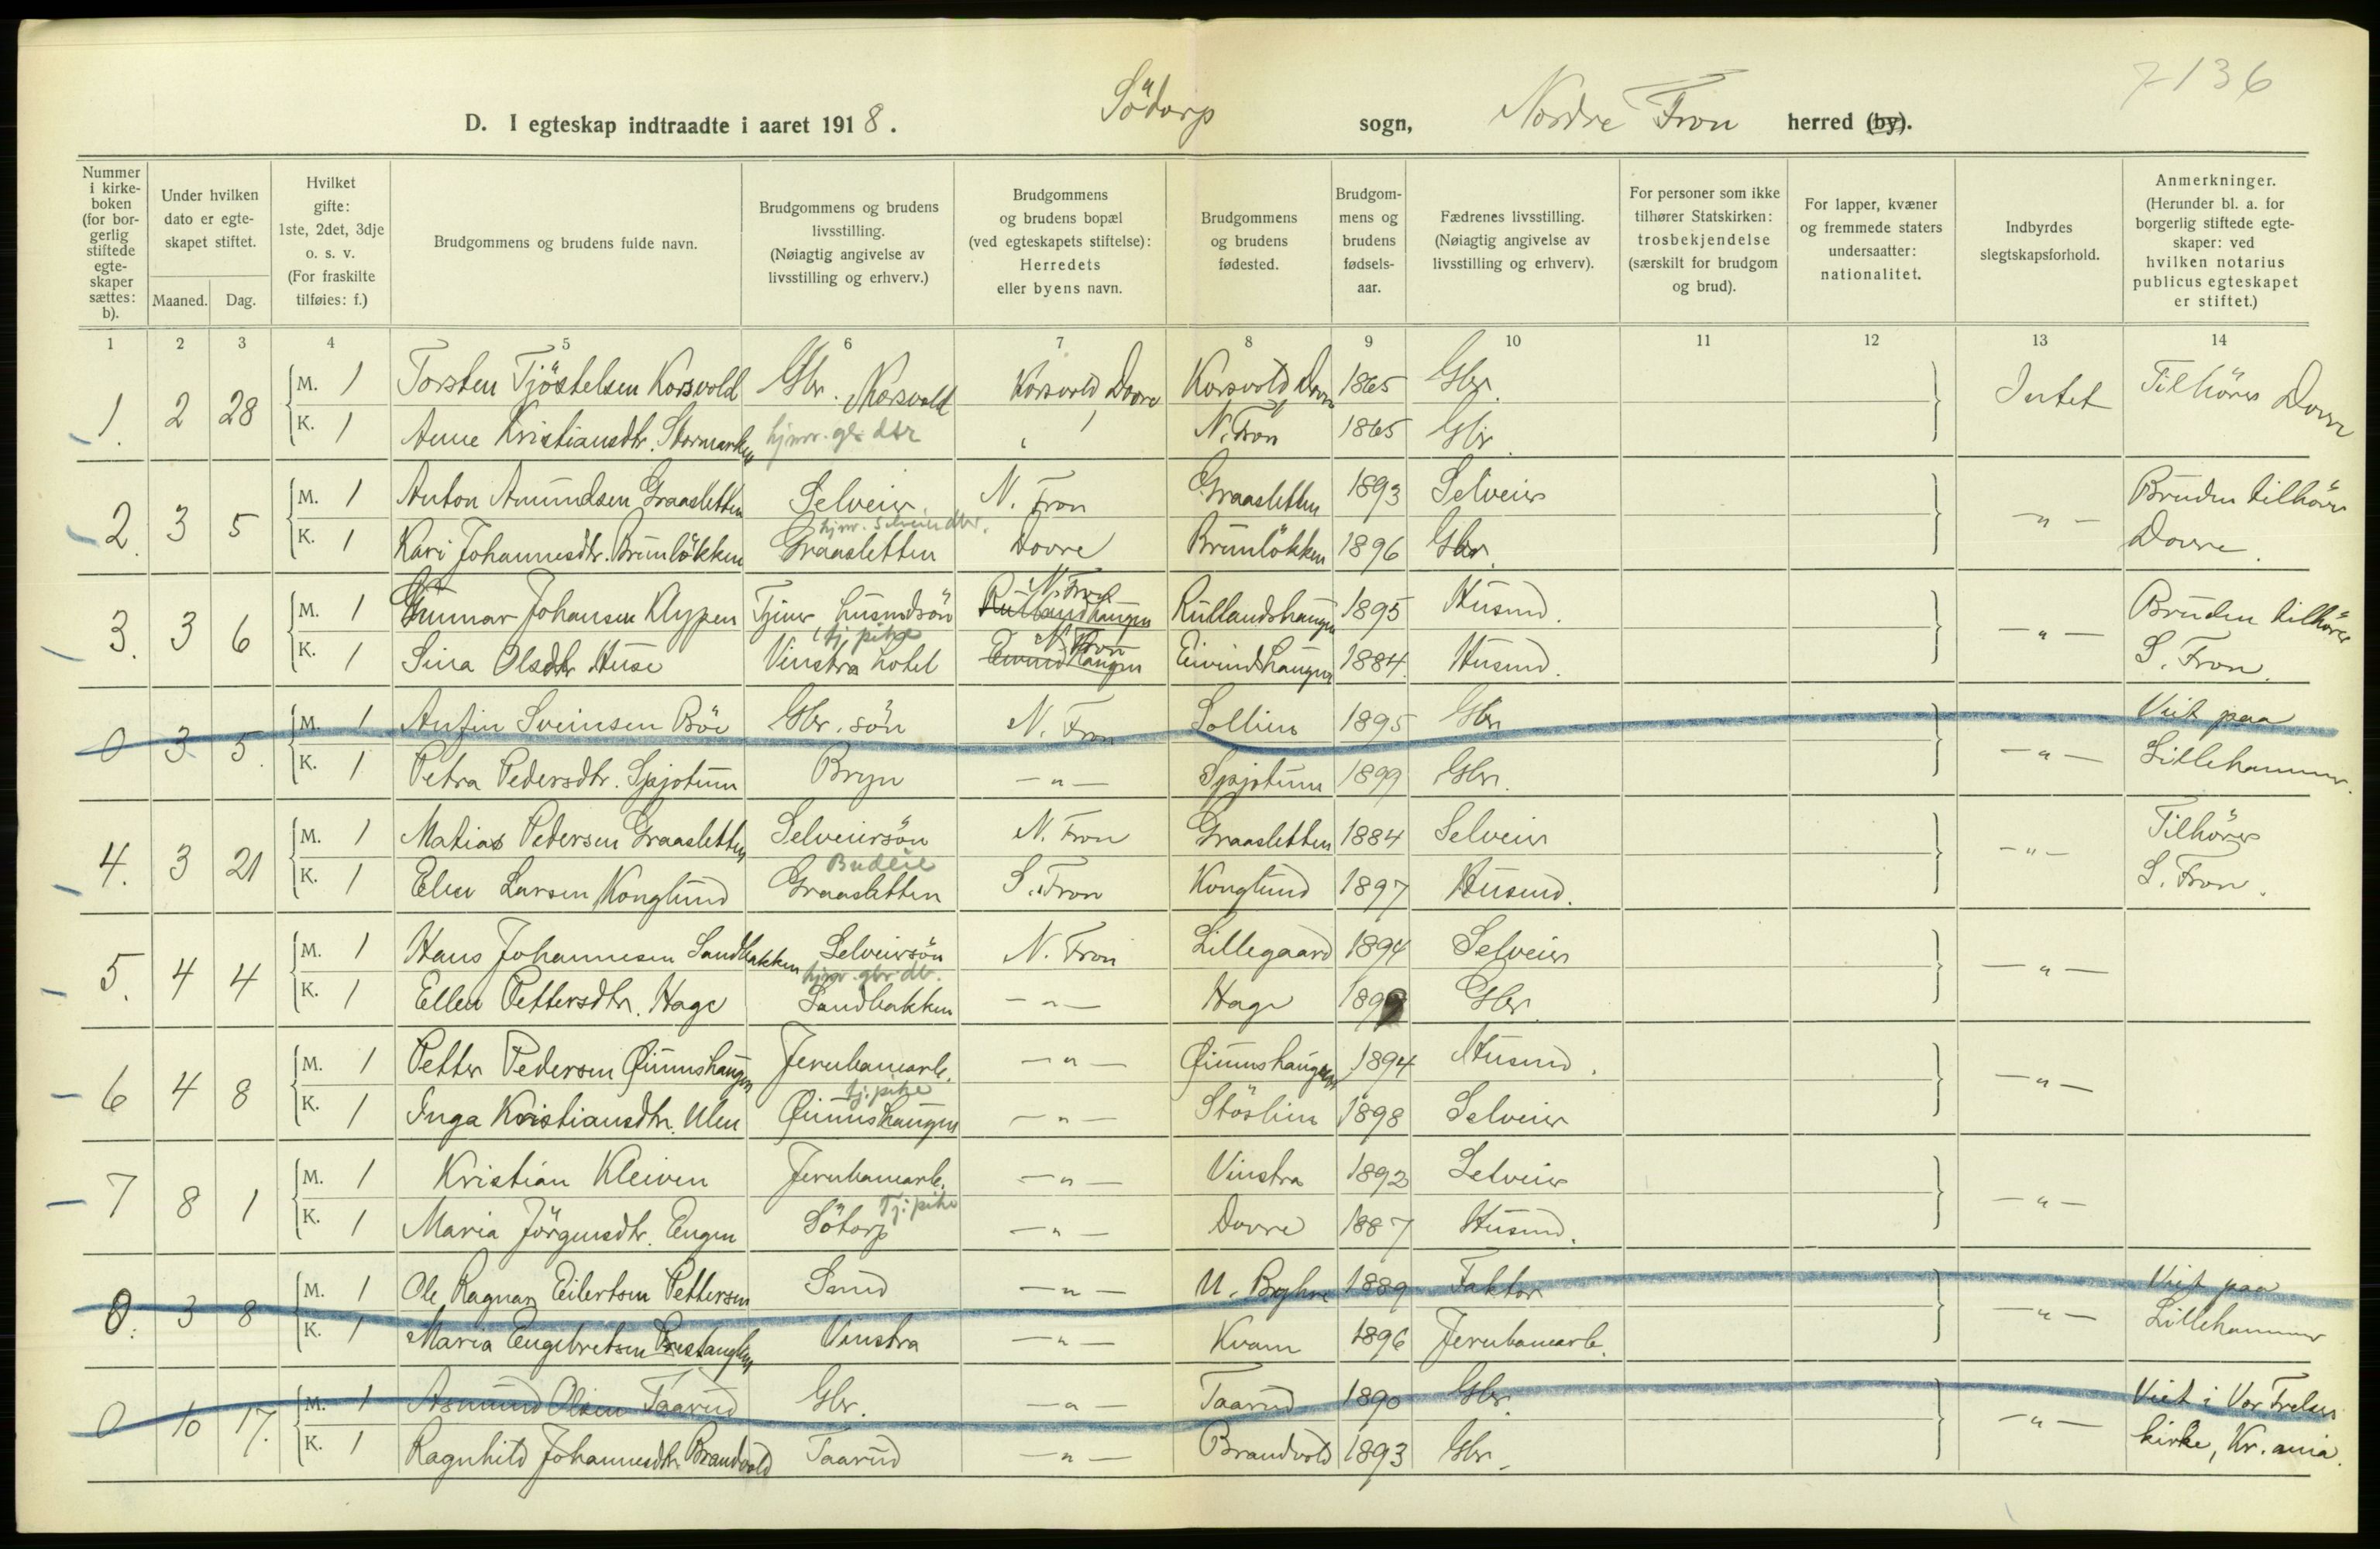 7136
D. I egteskap indtraadte i aaret 1918. Södorp sogn, Nordre Fron herred (by).
Nummer i kirke-boken (for bor-gerlig stiftede egte-skaper sættes: b).
Under hvilken dato er egte-skapet stiftet.
Maaned. Dag.
Hvilket gifte: 1ste, 2det, 3dje o. s. v. (For fraskilte tilføies: f.)
Brudgommens og brudens fulde navn.
Brudgommens og brudens livsstilling. (Nøiagtig angivelse av livsstilling og erhverv.)
Brudgommens og brudens bopæl (ved egteskapets stiftelse): Herredets eller byens navn.
Brudgommens og brudens fødested.
Brudgom-mens og brudens fødsels-aar.
Fædrenes livsstilling. (Nøiagtig angivelse av livsstilling og erhverv).
For personer som ikke tilhører Statskirken: trosbekjendelse (særskilt for brudgom og brud).
For lapper, kvæner og fremmede staters undersaatter: nationalitet.
Indbyrdes slegtskapsforhold.
Anmerkninger. (Herunder bl. a. for borgerlig stiftede egte-skaper: ved hvilken notarius publicus egteskapet er stiftet.)
1 2 3 4 5 6 7 8 9 10 11 12 13 14
1. 2 28 M. 1 Torsten Tjöstelsen Korsvold Gbr. Korsvold Korsvold Dovre Korsvold, Dovre 1865 Gbr. Intet Tilhörer Dovre
K. 1 Anne Kristiansdtr. Stormorken hjmv. gbr dtr " N. Fron 1865 Gbr.
2. 3 5 M. 1 Anton Amundsen Graasletten Selveier N. Fron Graasletten 1893 Selveier -"- Bruden tilhörer
K. 1 Kari Johannesdtr. Brunlökken hjmv. selveierdtr. Graasletten Dovre Brunlökken 1896 Gbr. Dovre.
3. 3 6 M. 1 Gunnar Johansen Klypen Tjener, husmdsön N. Fron Rutlandshaugen Rutlandshaugen 1895 Husmd. -"- Bruden tilhörer
K. 1 Sina Olsdtr Huse tj. pike Vinstra hotel N. Fron Eivindshaugen Eivindshaugen 1884. Husmd. S. Fron.
0 3 5. M. 1 Anfin Sveinsen Böe Gbr. sön N. Fron Sollien 1895 Gbr -"- Viet paa
K. 1 Petra Pedersdtr. Spjotum Bryn -"- Spjotum 1899 Gbr. Lillehammer.
4. 3 21 M. 1 Matias Pedersen Graasletten Selveiersön N. Fron Graasletten 1884 Selveier -"- Tilhörer
K. 1 Elen Larsen Konglund Budeie Graasletten S. Fron Konglund 1897 Husmd. S. Fron.
5. 4 4 M. 1 Hans Johannesen Sandbakken Selveiersön N. Fron Lillegaard 1894 Selveier -"-
K. 1 Ellen Pettersdtr. Hage hjmv. gbr. dtr. Sandbakken -"- Hage Gbr.
6 4 8 M. 1 Petter Pedersen Qiunshaugen Jernbanearb. -"- Qiunshaugen 1894 Husmd. -"-
K. 1 Inga Kristiansdtr. Ulen tj. pike Qiunshaugen -"- Stöslien 1898 Selveier
7 8 1 M. 1 Kristian Kleiven Jernbanearb. -"- Vinstra 1892 Selveier -"-
K. 1 Maria Jörgensdtr. Engen Tj: pike Sötorp -"- Dovre 1887 Husmd.
0. 3 8 M. 1 Ole Ragnar Eilertsen Pettersen Smed -"- 1889 Faktor -"- Viet paa
K. 1 Maria Engebretsen Prestangen Vinstra -"- Kvam 1896 Jernbanearb. Lillehammer
0 10 17. M. 1 Asmund Olsen Taarud Gbr. -"- Taarud 1890 Gbr. -"- Viet i Vor Frelsers
K. 1 Ragnhild Johannesdtr. Brandvold Taarud -"- Brandvold 1893 Gbr. kirke, Kr.ania.